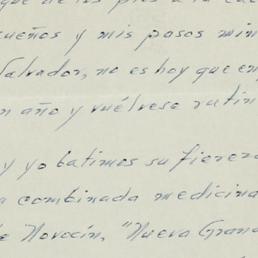 que de los pies a la cab
sueños y mis pasos min
Salvador, no es hoy que em
n año y vuélvese rutin
y yo batimos su fiereza
a combinada medicina
de Novocín, "Nueva Grana